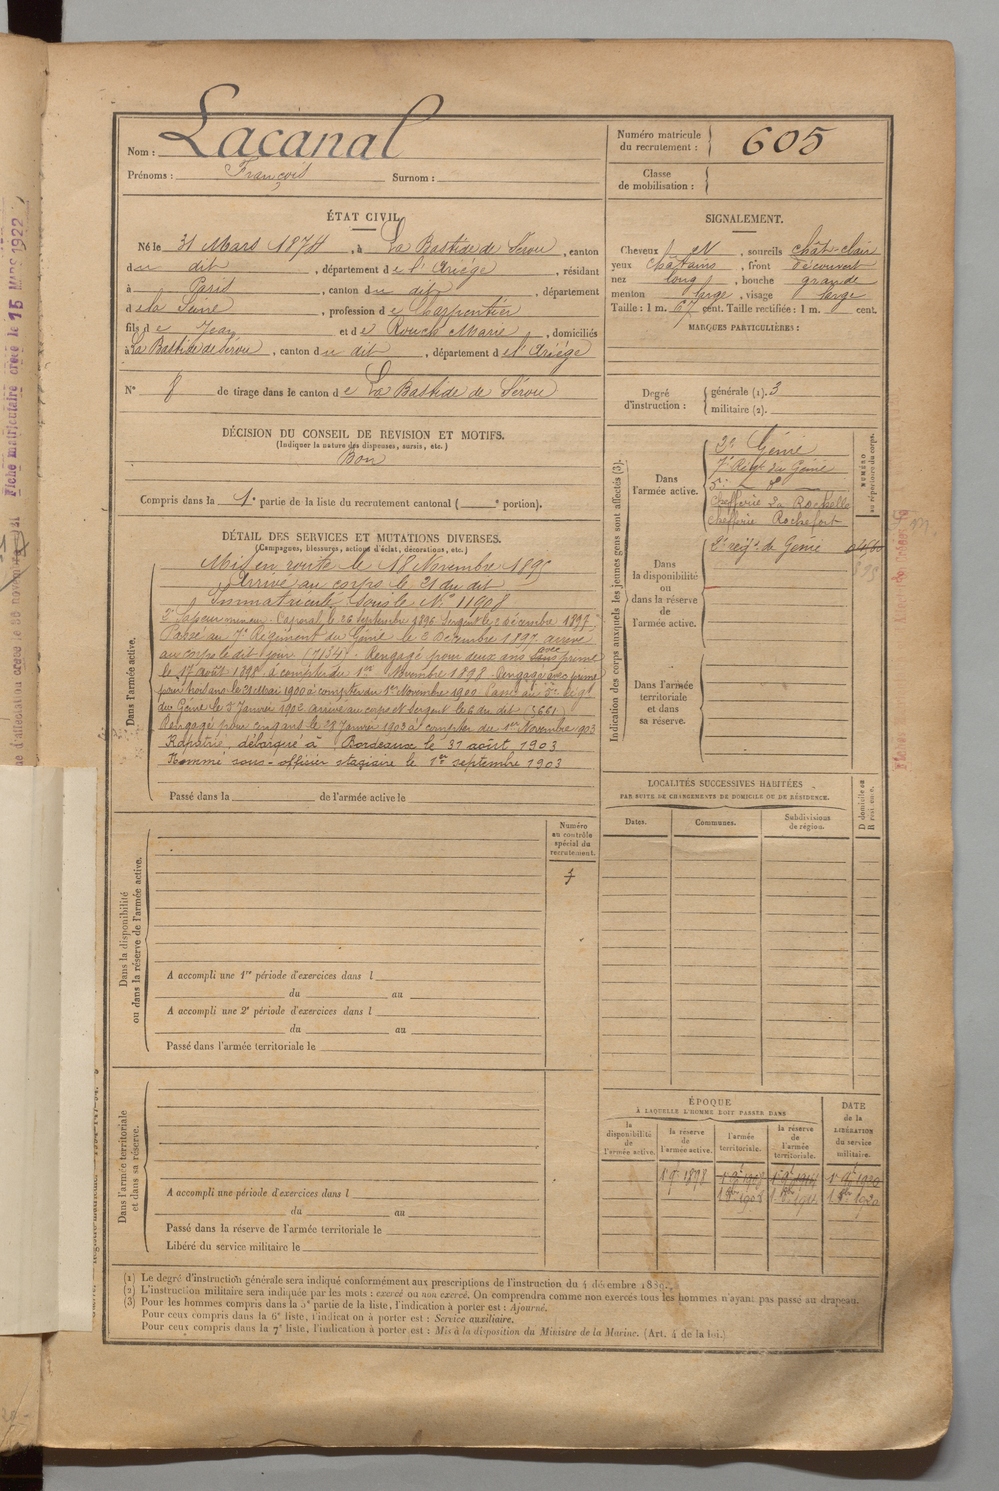 Nom : Lacanal
Prénoms : François Surnom :
Numéro matricule du recrutement : 605
Classe de mobilisation :
ÉTAT CIVIL.
Né le 31 Mars 1874, à La Bastide de Sérou, canton
du dit, département de l'Ariège, résidant
à Paris, canton du dit, département
de la Seine, profession de Charpentier
fils de Jean et de Rouch Marie, domiciliés
à La Bastide de Sérou, canton du dit, département de l'Ariège
N° 8 de tirage dans le canton de La Bastide de Sérou
DÉCISION DU CONSEIL DE REVISION ET MOTIFS.
(Indiquer la nature des dispenses, sursis, etc.)
Bon
Compris dans la 1e partie de la liste du recrutement cantonal ( e portion).
DÉTAIL DES SERVICES ET MUTATIONS DIVERSES.
(Campagnes, blessures, actions d'éclat, décorations, etc.)
Dans l'armée active.
Mis en route le 18 Novembre 1895
Arrivé au corps le 21 du dit
Immatriculé sous le N° 11908
2e Sapeur mineur. Caporal, le 26 Septembre 1896. Sergent le 2 décembre 1897
Passé au 7e Régiment du Génie le 2 Décembre 1897 arrivé
au corps le dit jour (7134). Rengagé pour deux ans sans avec prime
le 17 août 1898 à compter du 1er Novembre 1898. Rengagé avec prime
pour trois ans le 28 Mai 1900 à compter du 1er Novembre 1900. Passé au 5e Régt
du Génie le 3 Janvier 1902 arrivé au corps et Sergent le 6 du dit (5661)
Rengagé pour cinq ans le 28 Janvier 1903 à compter du 1er Novembre 1903
Rapatrié, débarqué à Bordeaux le 31 août 1903
Nommé sous-officier stagiaire le 1er septembre 1903
Passé dans la de l'armée active le
Numéro au contrôle spécial du recrutement.
Dans la disponibilité ou dans la réserve de l'armée active.
A accompli une 1re période d'exercices dans l
du au
A accompli une 2e période d'exercices dans l
du au
Passé dans l'armée territoriale le
Dans l'armée territoriale et dans sa réserve.
A accompli une période d'exercices dans l
du au
Passé dans la réserve de l'armée territoriale le
Libéré du service militaire le
SIGNALEMENT.
Cheveux N, sourcils chât-clair
yeux châtains, front découvert
nez long, bouche grande
menton large, visage large
Taille : 1 m. 67 cent. Taille rectifiée : 1 m. cent.
MARQUES PARTICULIÈRES :
Degré d'instruction : générale (1). 3
militaire (2).
Indication des corps auxquels les jeunes gens sont affectés (3).
NUMÉRO au répertoire du corps.
Dans l'armée active.
2e Génie
7e Régt du Génie
5e - d° -
Chefferie La Rochelle
Chefferie Rochefort
Dans la disponibilité ou dans la réserve de l'armée active.
2e régt de Génie
Dans l'armée territoriale et dans sa réserve.
LOCALITÉS SUCCESSIVES HABITÉES
PAR SUITE DE CHANGEMENTS DE DOMICILE OU DE RÉSIDENCE.
Dates. Communes. Subdivisions de région. D domicile ou R résidence.
ÉPOQUE
À LAQUELLE L'HOMME DOIT PASSER DANS
DATE de la LIBÉRATION du service militaire.
la disponibilité de l'armée active. la réserve de l'armée active. l'armée territoriale. la réserve de l'armée territoriale.
1 9e 1898 1 9e 1908 1 9e 1914 1 9e 1920
(1) Le degré d'instruction générale sera indiqué conformément aux prescriptions de l'instruction du 4 décembre 1889.
(2) L'instruction militaire sera indiquée par les mots : exercé ou non exercé. On comprendra comme non exercés tous les hommes n'ayant pas passé au drapeau.
(3) Pour les hommes compris dans la 5e partie de la liste, l'indication à porter est : Ajourné.
Pour ceux compris dans la 6e liste, l'indication à porter est : Service auxiliaire.
Pour ceux compris dans la 7e liste, l'indication à porter est : Mis à la disposition du Ministre de la Marine. (Art. 4 de la loi.)
Fiche matriculaire créée le 15 MARS 1922